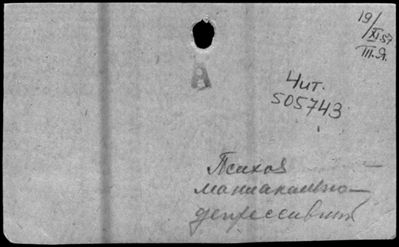 19/XI.57
Т.Я.
А
Чит.
505743
Психоз
маниакально-
депрессивный